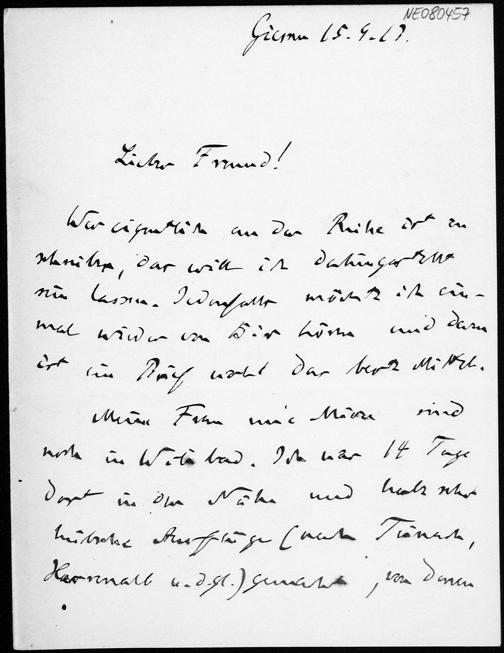 NE080457
Giessen 15.4.17.
Lieber Freund!
Wer eigentlich an der Reihe ist zu
schreiben, das will ich dahingestellt
sein lassen. Jedenfalls möchte ich ein-
mal wieder von Dir hören und dazu
ist ein Brief wohl das beste Mittel.
Meine Frau und sind
noch in Wildbad. Ich war 14 Tage
dort in der Nähe und habe sehr
hübsche Ausflüge (nach Teinach,
Herrenalb u. dgl.) gemacht, von denen